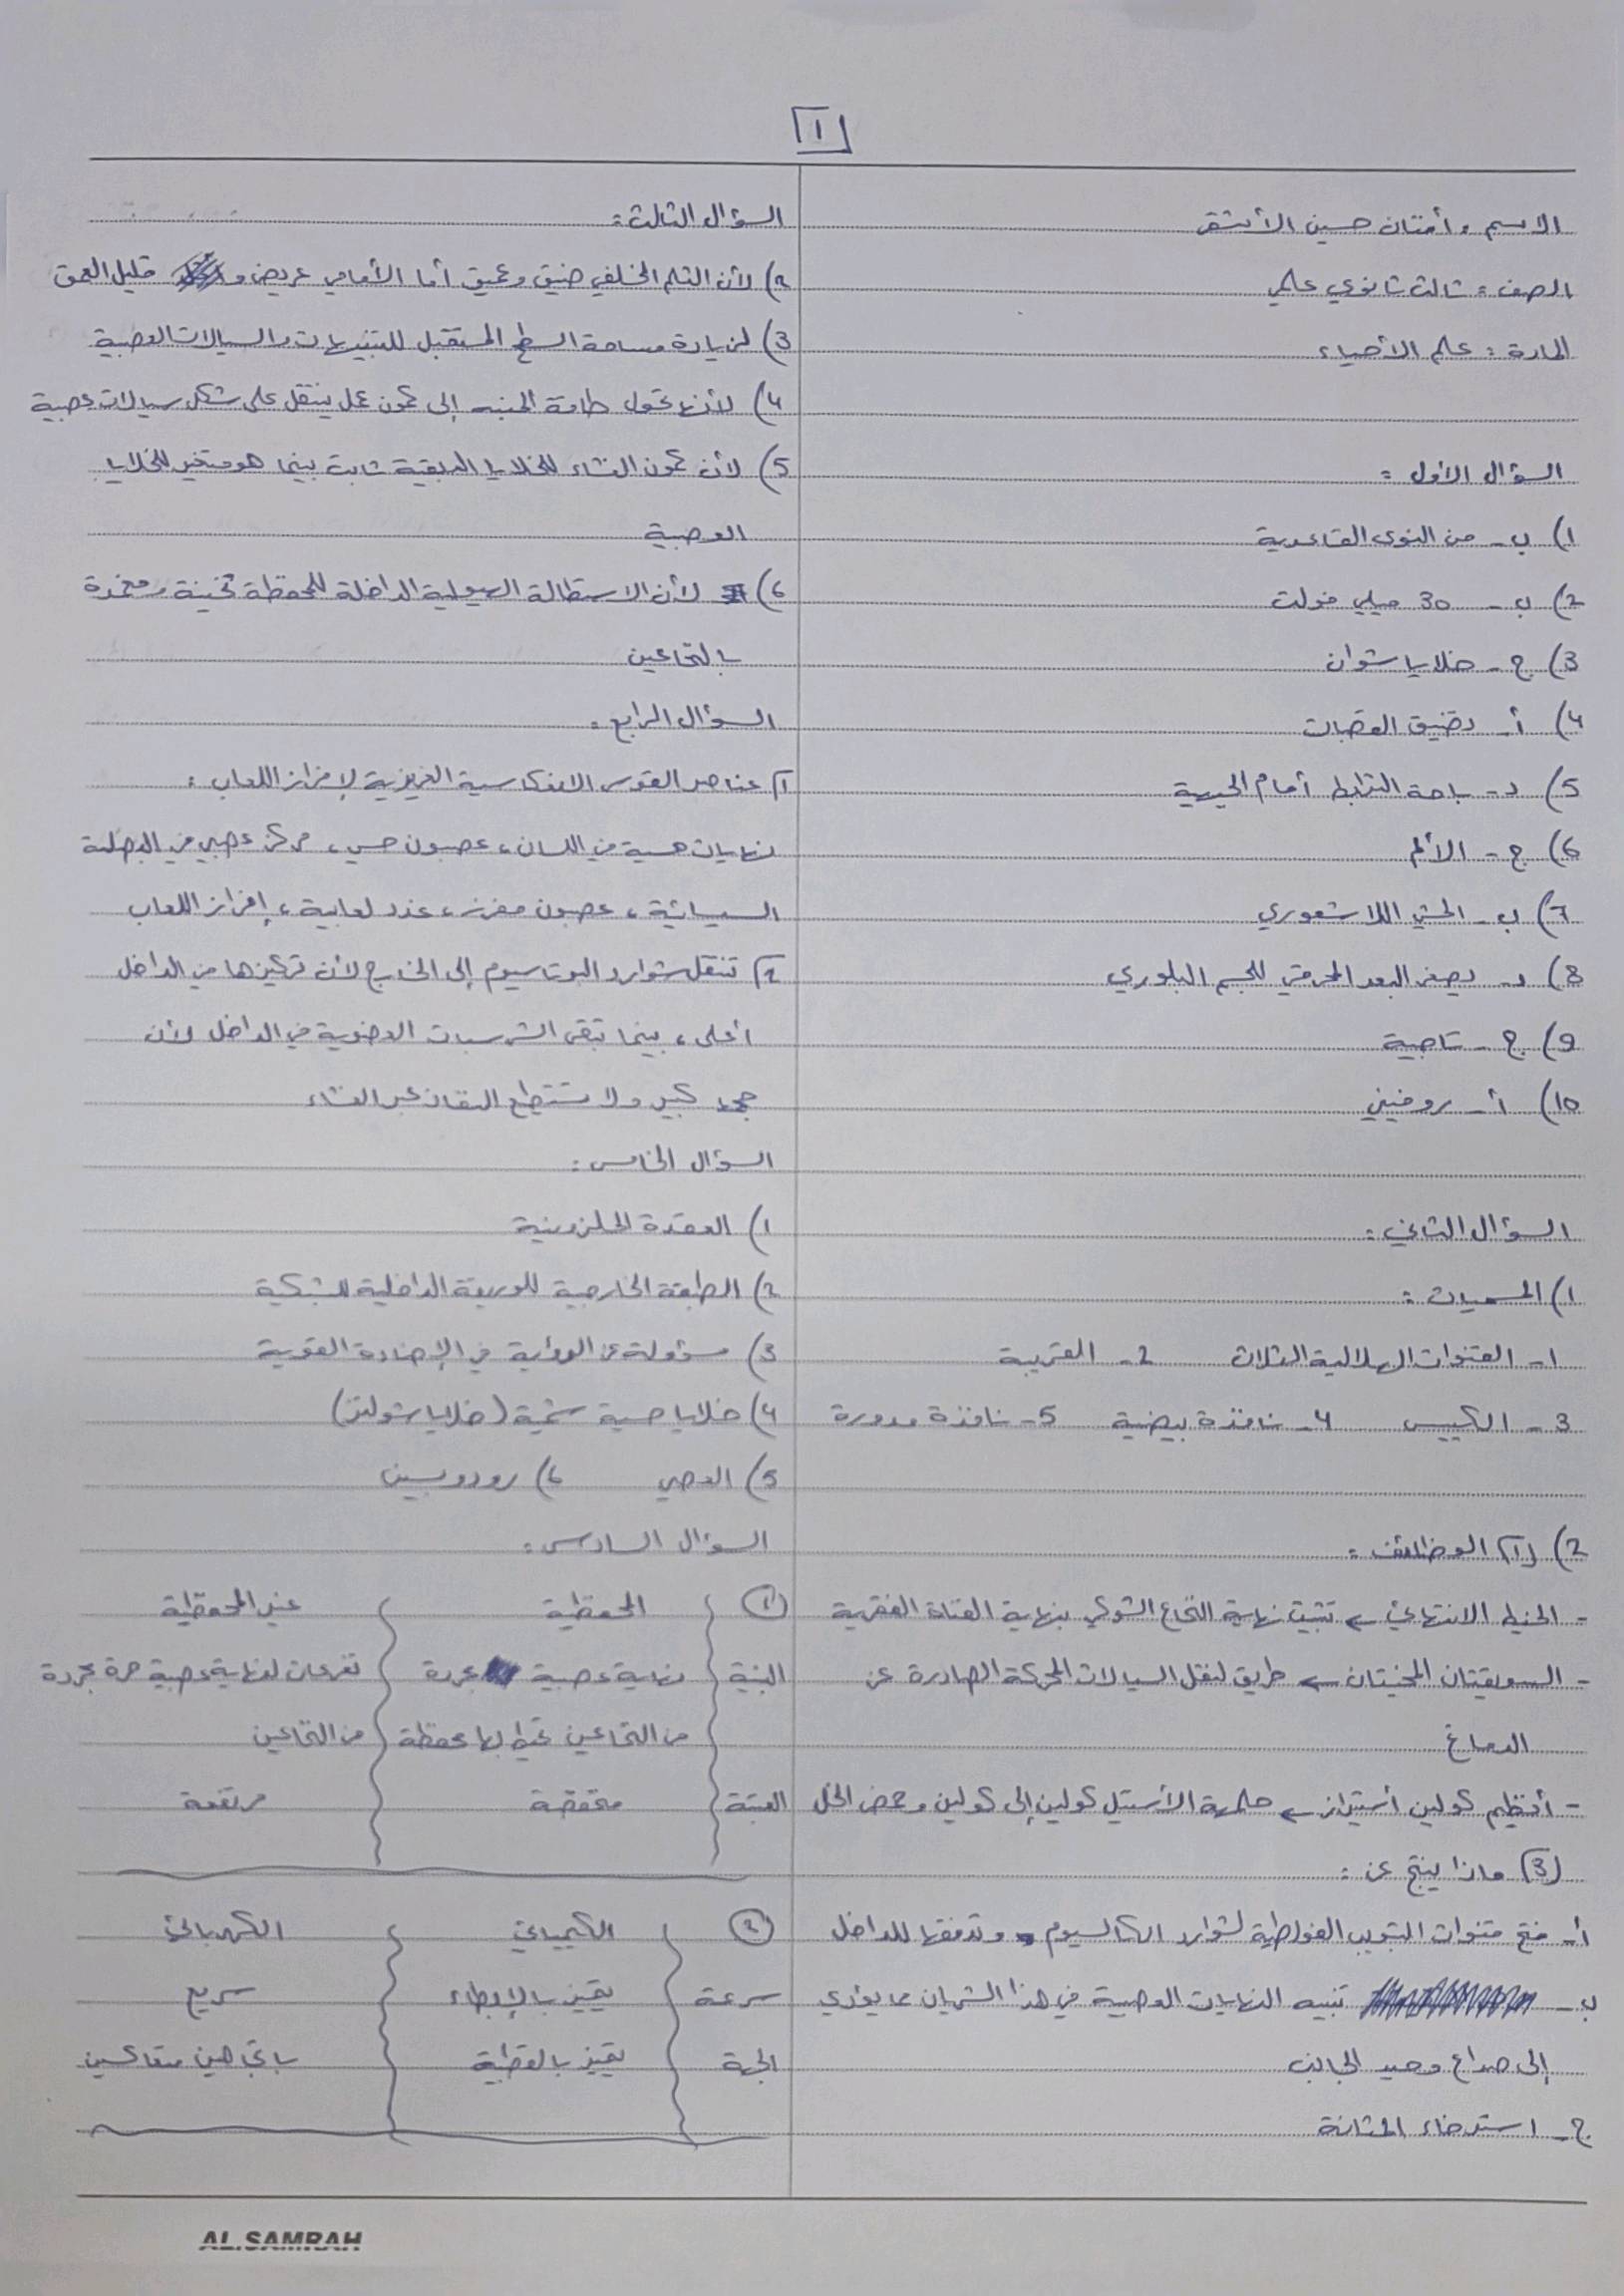 ١
الاسم: أفنان حسين الأشقر
الصف: ثالث ثانوي علمي
المادة: علم الأحياء
السؤال الأول:
1) ب- من النوى القاعدية
2) ب- 30 ميلي فولت
3) ج- خلايا شوان
4) أ- تضيق القصبات
5) د- باحة الترابط أمام الجبهية
6) ج- الألم
7) ب- الحس اللاشعوري
8) د- يصغر البعد المحرقي للجسم البلوري
9) ج- تاجية
10) أ- روفيني
السؤال الثاني:
1) المسميات:
1- القنوات الهلالية الثلاث 2- القريبة
3- الكييس 4- نافذة بيضية 5- نافذة مدورة
2) الوظائف:
- الخيط الانتهائي ← تثبيت نهاية النخاع الشوكي بنهاية القناة الفقرية
- السويقتان المخيتان ← طريق لنقل السيالات المحركة الصادرة عن
الدماغ
- أنظيم كولين أستيراز ← حلمهة الأستيل كولين إلى كولين وحمض الخل
3) ماذا ينتج عن:
أ- فتح قنوات التبويب الفولطية لشوارد الكالسيوم وتدفقها للداخل
ب- تنبيه النهايات العصبية في هذا الشريان مما يؤدي
إلى صداع وحيد الجانب
ج- استرخاء المثانة
السؤال الثالث:
2) لأن الثلم الخلفي ضيق وعميق أما الأمامي عريض و قليل العمق
3) لزيادة مساحة السطح المستقبل للتنبيهات والسيالات العصبية
4) لأنها تحول طاقة المنبه إلى كمون عمل ينتقل على شكل سيالات عصبية
5) لأن كمون الغشاء للخلايا الدبقية ثابت بينما هو متغير للخلايا
العصبية
6) لأن الاستطالة الهيولية الداخلة للمحفظة ثخينة ومغمدة
بالنخاعين
السؤال الرابع:
1) عناصر القوس الانعكاسية الغريزية لإفراز اللعاب:
نهايات حسية في اللسان، عصبون حسي، مركز عصبي في البصلة
السيسائية، عصبون مفرز، غدد لعابية، إفراز اللعاب
2) تنتقل شوارد البوتاسيوم إلى الخارج لأن تركيزها في الداخل
أعلى، بينما تبقى الشرسبات العضوية في الداخل لأن
حجمها كبير ولا تستطيع النفاذ عبر الغشاء
السؤال الخامس:
1) العقدة الحلزونية
2) الطبقة الخارجية للوريقة الداخلية للشبكية
3) مسؤولة عن الرؤية في الإضاءة القوية
4) خلايا حسية شمية (خلايا شولتز)
5) العصي 6) رودوبسين
السؤال السادس:
① المحفظية غير المحفظية
البنية نهاية عصبية مجردة تفرعات لنهاية عصبية حرة مجردة
من النخاعين تحيط بها محفظة من النخاعين
العتبة منخفضة مرتفعة
② الكيميائي الكهربائي
سرعة يتميز بالإبطاء سريع
الجهة يتميز بالقطبية باتجاهين متعاكسين
AL.SAMRAH